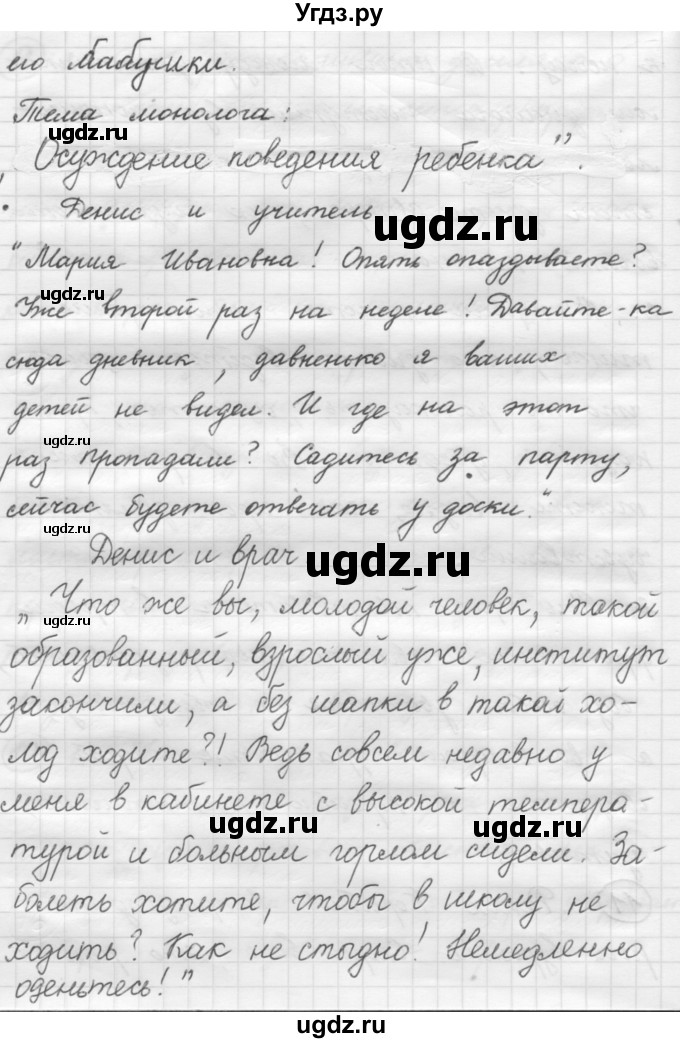 Угдз.ру
его бабушки.
Тема монолога:
ugdz.ru
„Осуждение поведения ребенка”.
• Денис и учитель
ugdz.ru
"Мария Ивановна! Опять опаздываете?
ugdz.ru
Уже второй раз на неделе! Давайте-ка
сюда дневник, давненько я ваших
детей не видел. И где на этот
ugdz.ru
раз пропадали? Садитесь за парту,
сейчас будете отвечать у доски."
ugdz.ru
Денис и врач
ugdz.ru
„Что же вы, молодой человек, такой
ugdz.ru
образованный, взрослый уже, институт
закончили, а без шапки в такой хо-
лод ходите?! Ведь совсем недавно у
меня в кабинете с высокой темпера-
ugdz.ru ugdz.ru
турой и больным горлом сидели. За-
болеть хотите, чтобы в школу не
ходить? Как не стыдно! Немедленно
оденьтесь!"
ugdz.ru